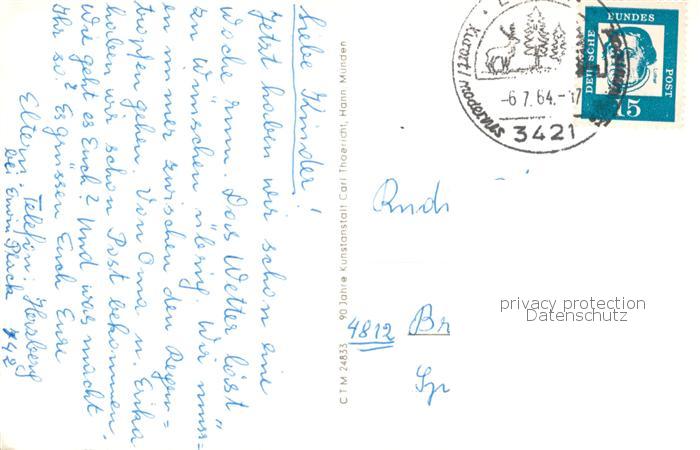 Liebe Kinder!
Jetzt haben wir schon eine
Woche rum. Das Wetter läßt
zu wünschen übrig. Wir müss=
en immer zwischen den Regen=
tropfen gehen. Von Oma u. Erika
haben wir schon Post bekommen.
Wie geht es Euch? Und was macht
Ihr so? Es grüssen Euch Eure
Eltern. Telefon: Herzberg
bei Erwin Pluck 742
C T M 24833 90 Jahre Kunstanstalt Carl Thoericht, Hann. Münden
Kurort / modernes
-6.7.64.-17
3421
DEUTSCHE BUNDES POST
Luther
15
Rudi
4812 Br
Sp
privacy protection
Datenschutz